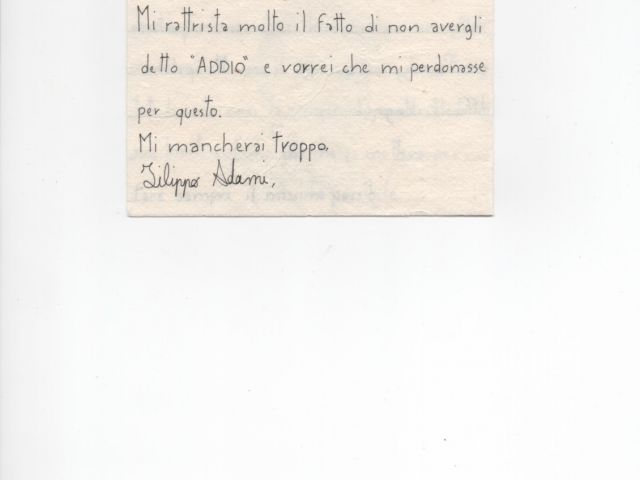 Mi rattrista molto il fatto di non avergli
detto "ADDIO" e vorrei che mi perdonasse
per questo.
Mi mancherai troppo.
Filippo Adami,